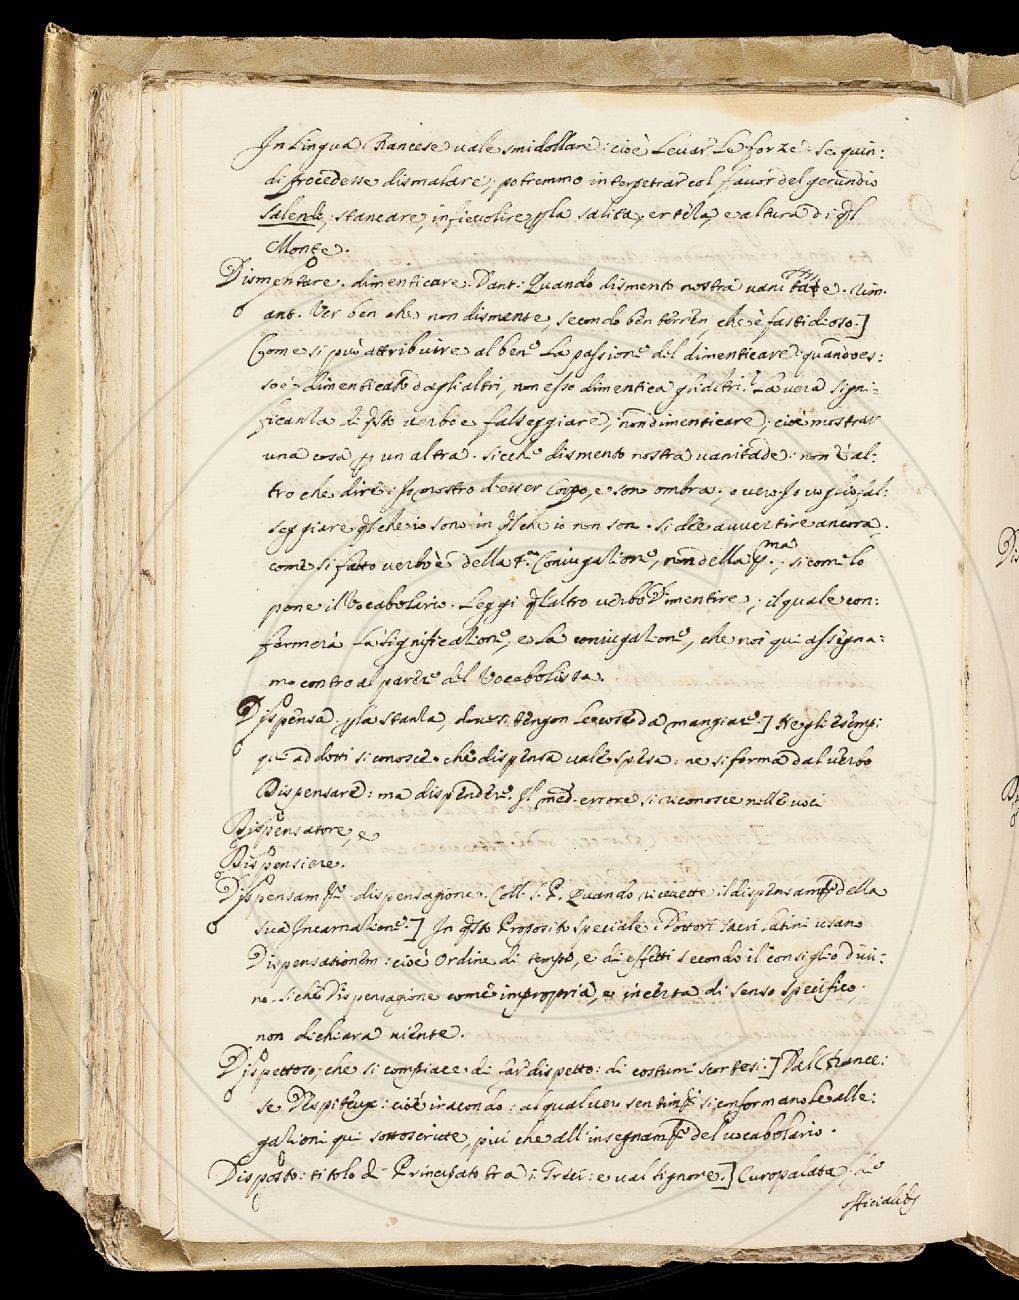 In Lingua francese vale smidollare: cioè Levar Le forze. Se quin:
di procedesse dismalare; potremmo interpetrar col favor del gerundio
salendo; stancare, infievolire p la salita, ertèza, e altura di ql
Monte.
Dismentare. dimenticare. Dant. Quando dismento nostra vanitate. Rim.
ant. Ver ben che non dismente, secondo ben terren, che è fastidioso.]
Come si può attribuire al bene La passione del dimenticare: quando es:
so è dimenticato dagli altri, non esso dimentica gli altri? La vera signi:
ficanza di qsto verbo è falseggiare, non dimenticare; cioè mostrar
una cosa p un altra. sicche dismento nostra vanitade: non è al:
tro che dire: Io mostro d'esser Corpo, e son ombra; o ver Io voglio fal:
seggiare ql che io sono in ql che io non son. Si dee avvertire ancora,
come si fatto verbo è della 4.a Coniugazione, non della p.ma; si come lo
pone il Vocabolario. Leggi ql altro verbo Dimentire; il quale con:
fermerà La significazione, e La coniugazione, che noi qui assegna:
mo contro al parere del Vocabolista.
Dispensa. p la stanza, dove si tengon le cose da mangiare.] Negli esempi
qui addotti si conosce che dispensa vale spesa: ne si forma dal verbo
Dispensare: ma dispendere. Il med. errore si riconosce nelle voci
Dispensatore, e
Dispensiere.
Dispensamto. dispensagione. Coll. S. P. Quando ricevette il dispensamto della
sua Incarnazione.] In qsto Proposito speciale i Dottori sacri Latini usano
Dispensationem: cioè Ordine di tempo, e di effetti secondo il consiglio Divi:
no. siche Dispensagione come impropria, e incerta di senso specifico,
non dichiara niente.
Dispettoso; che si compiace di far dispetto: di costumi scortesi.] Dal france:
se Despiteux: cioè iracondo: al qual ver sentimto si conformano le alle:
gazioni qui sottoscritte, più che all'insegnamto del vocabolario.
Disposto: titolo di Principato tra i Greci: e val signore.] Curopalata. de
officialibs